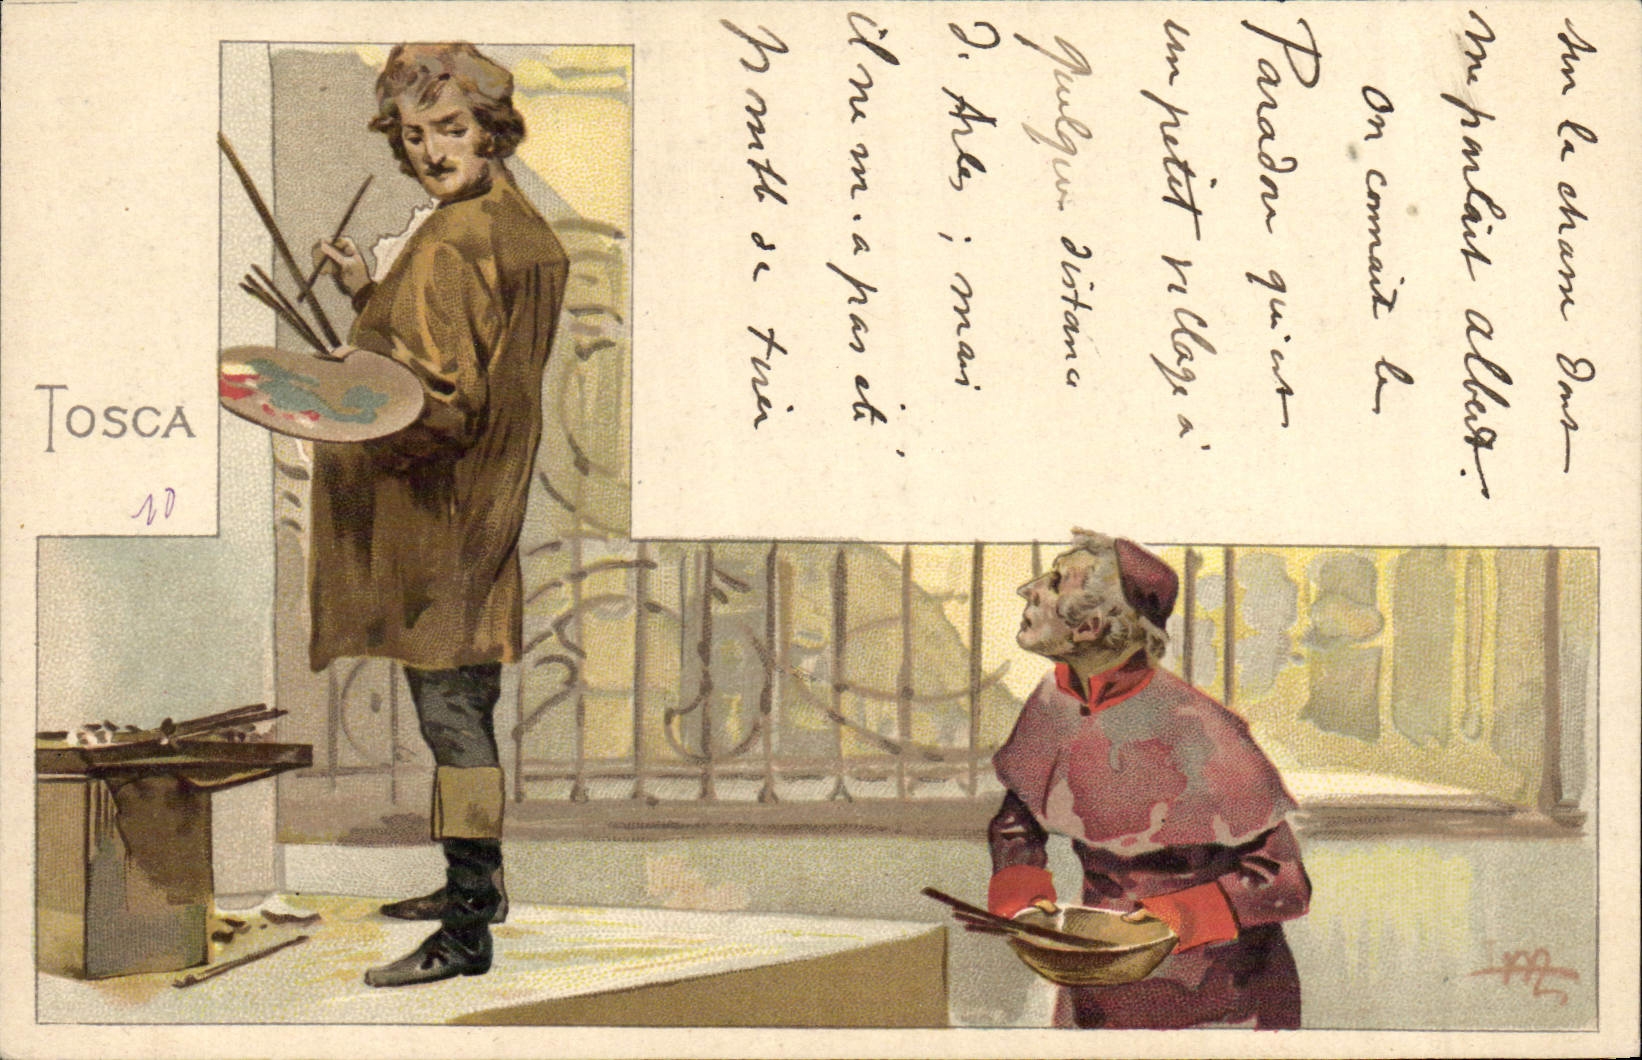 TOSCA
10
sur la chasse dont
me parlait Albert.
On connait le
Paradou qui est
un petit village à
quelque distance
d'Arles ; mais
il ne m'a pas été
possible de tirer